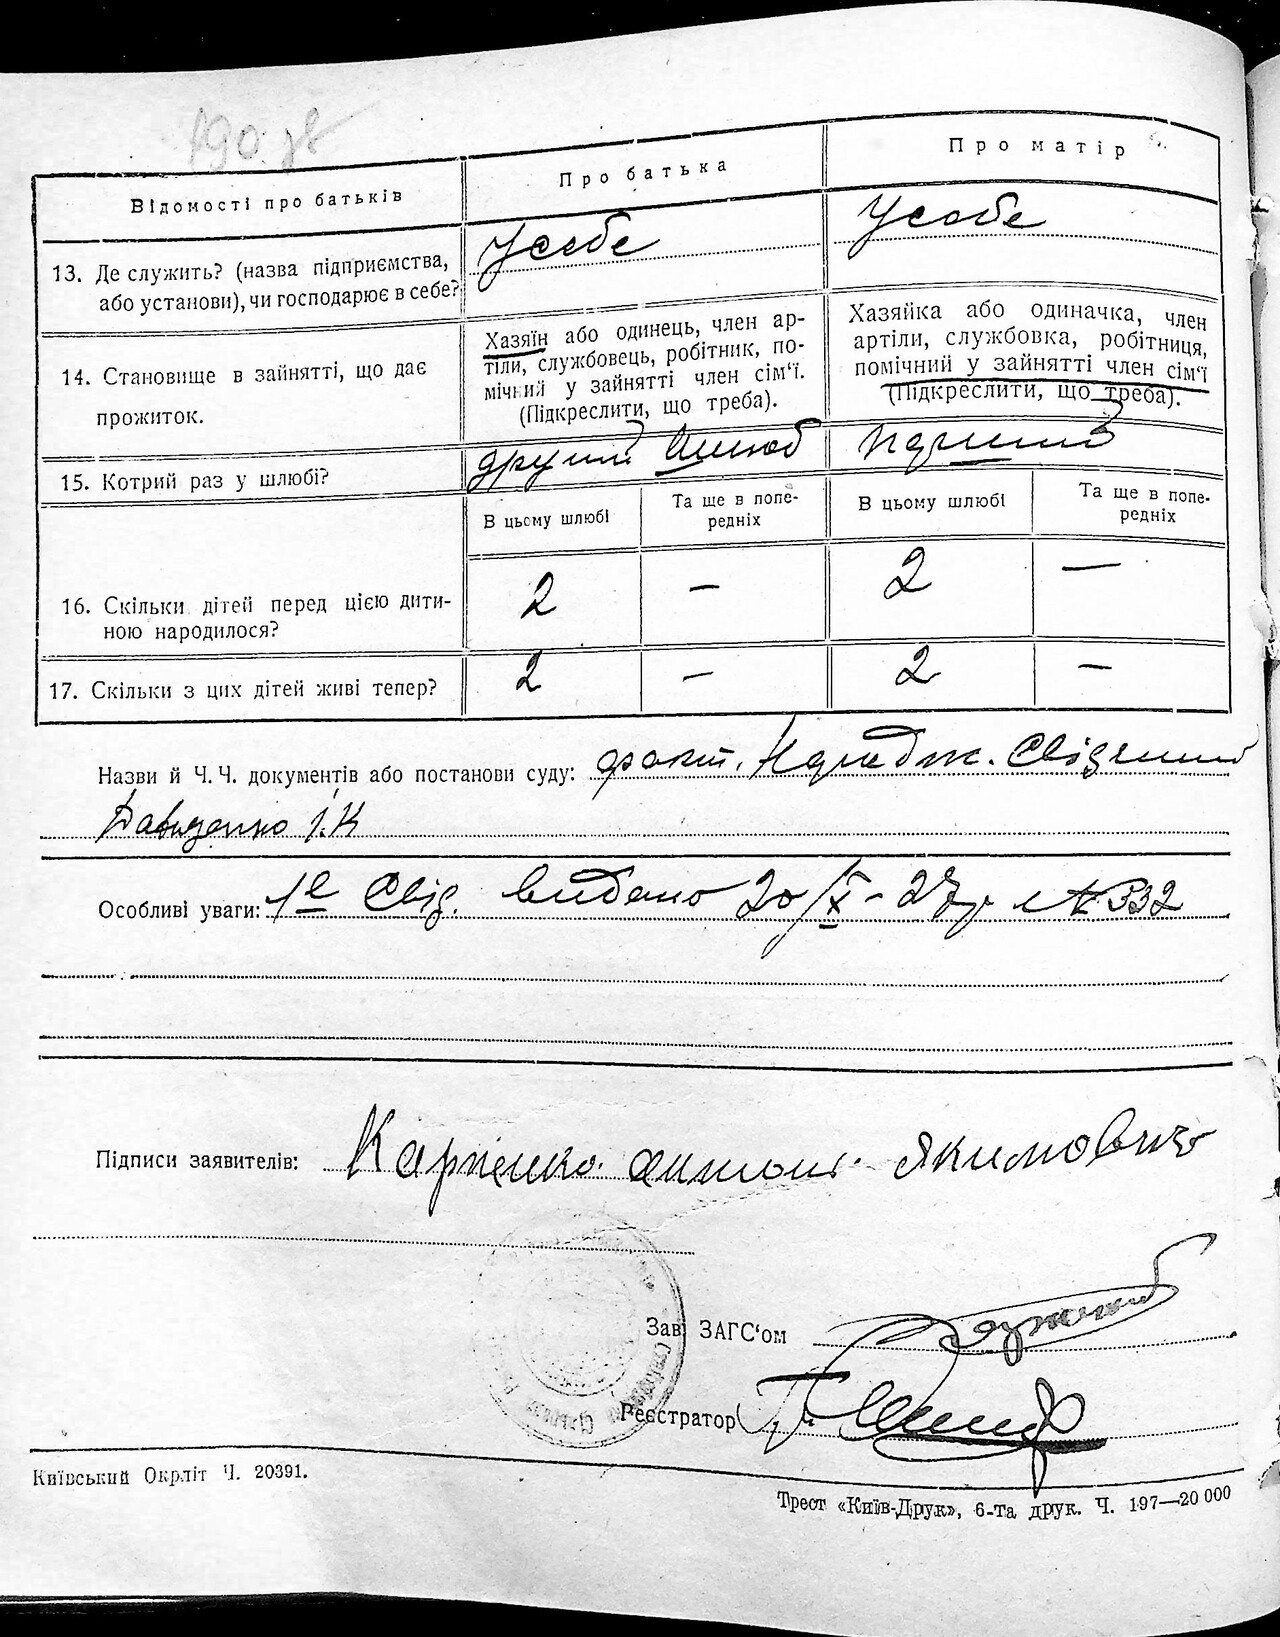 190 зв
Відомості про батьків
Про батька
Про матір
13. Де служить? (назва підприємства,
або установи), чи господарює в себе?
У себе
У себе
14. Становище в зайнятті, що дає
прожиток.
Хазяїн або одинець, член ар-
тіли, службовець, робітник, по-
мічний у зайнятті член сім'ї.
(Підкреслити, що треба).
Хазяйка або одиначка, член
артіли, службовка, робітниця,
помічний у зайнятті член сім'ї
(Підкреслити, що треба).
15. Котрий раз у шлюбі?
другий шлюб
перший
В цьому шлюбі
Та ще в попе-
редніх
В цьому шлюбі
Та ще в попе-
редніх
16. Скільки дітей перед цією дити-
ною народилося?
2 — 2 —
17. Скільки з цих дітей живі тепер?
2 — 2 —
Назви й Ч. Ч. документів або постанови суду:
факт. Народж. Свідчений
Давиденко І. К
Особливі уваги: Свід. видано 20/X - 27 р № 332
Підписи заявителів: Карпенко Антон Якимович
Зав. ЗАГС'ом
Реєстратор
Київський Окрліт Ч. 20391.
Трест «Київ-Друк», 6-та друк. Ч. 197—20 000